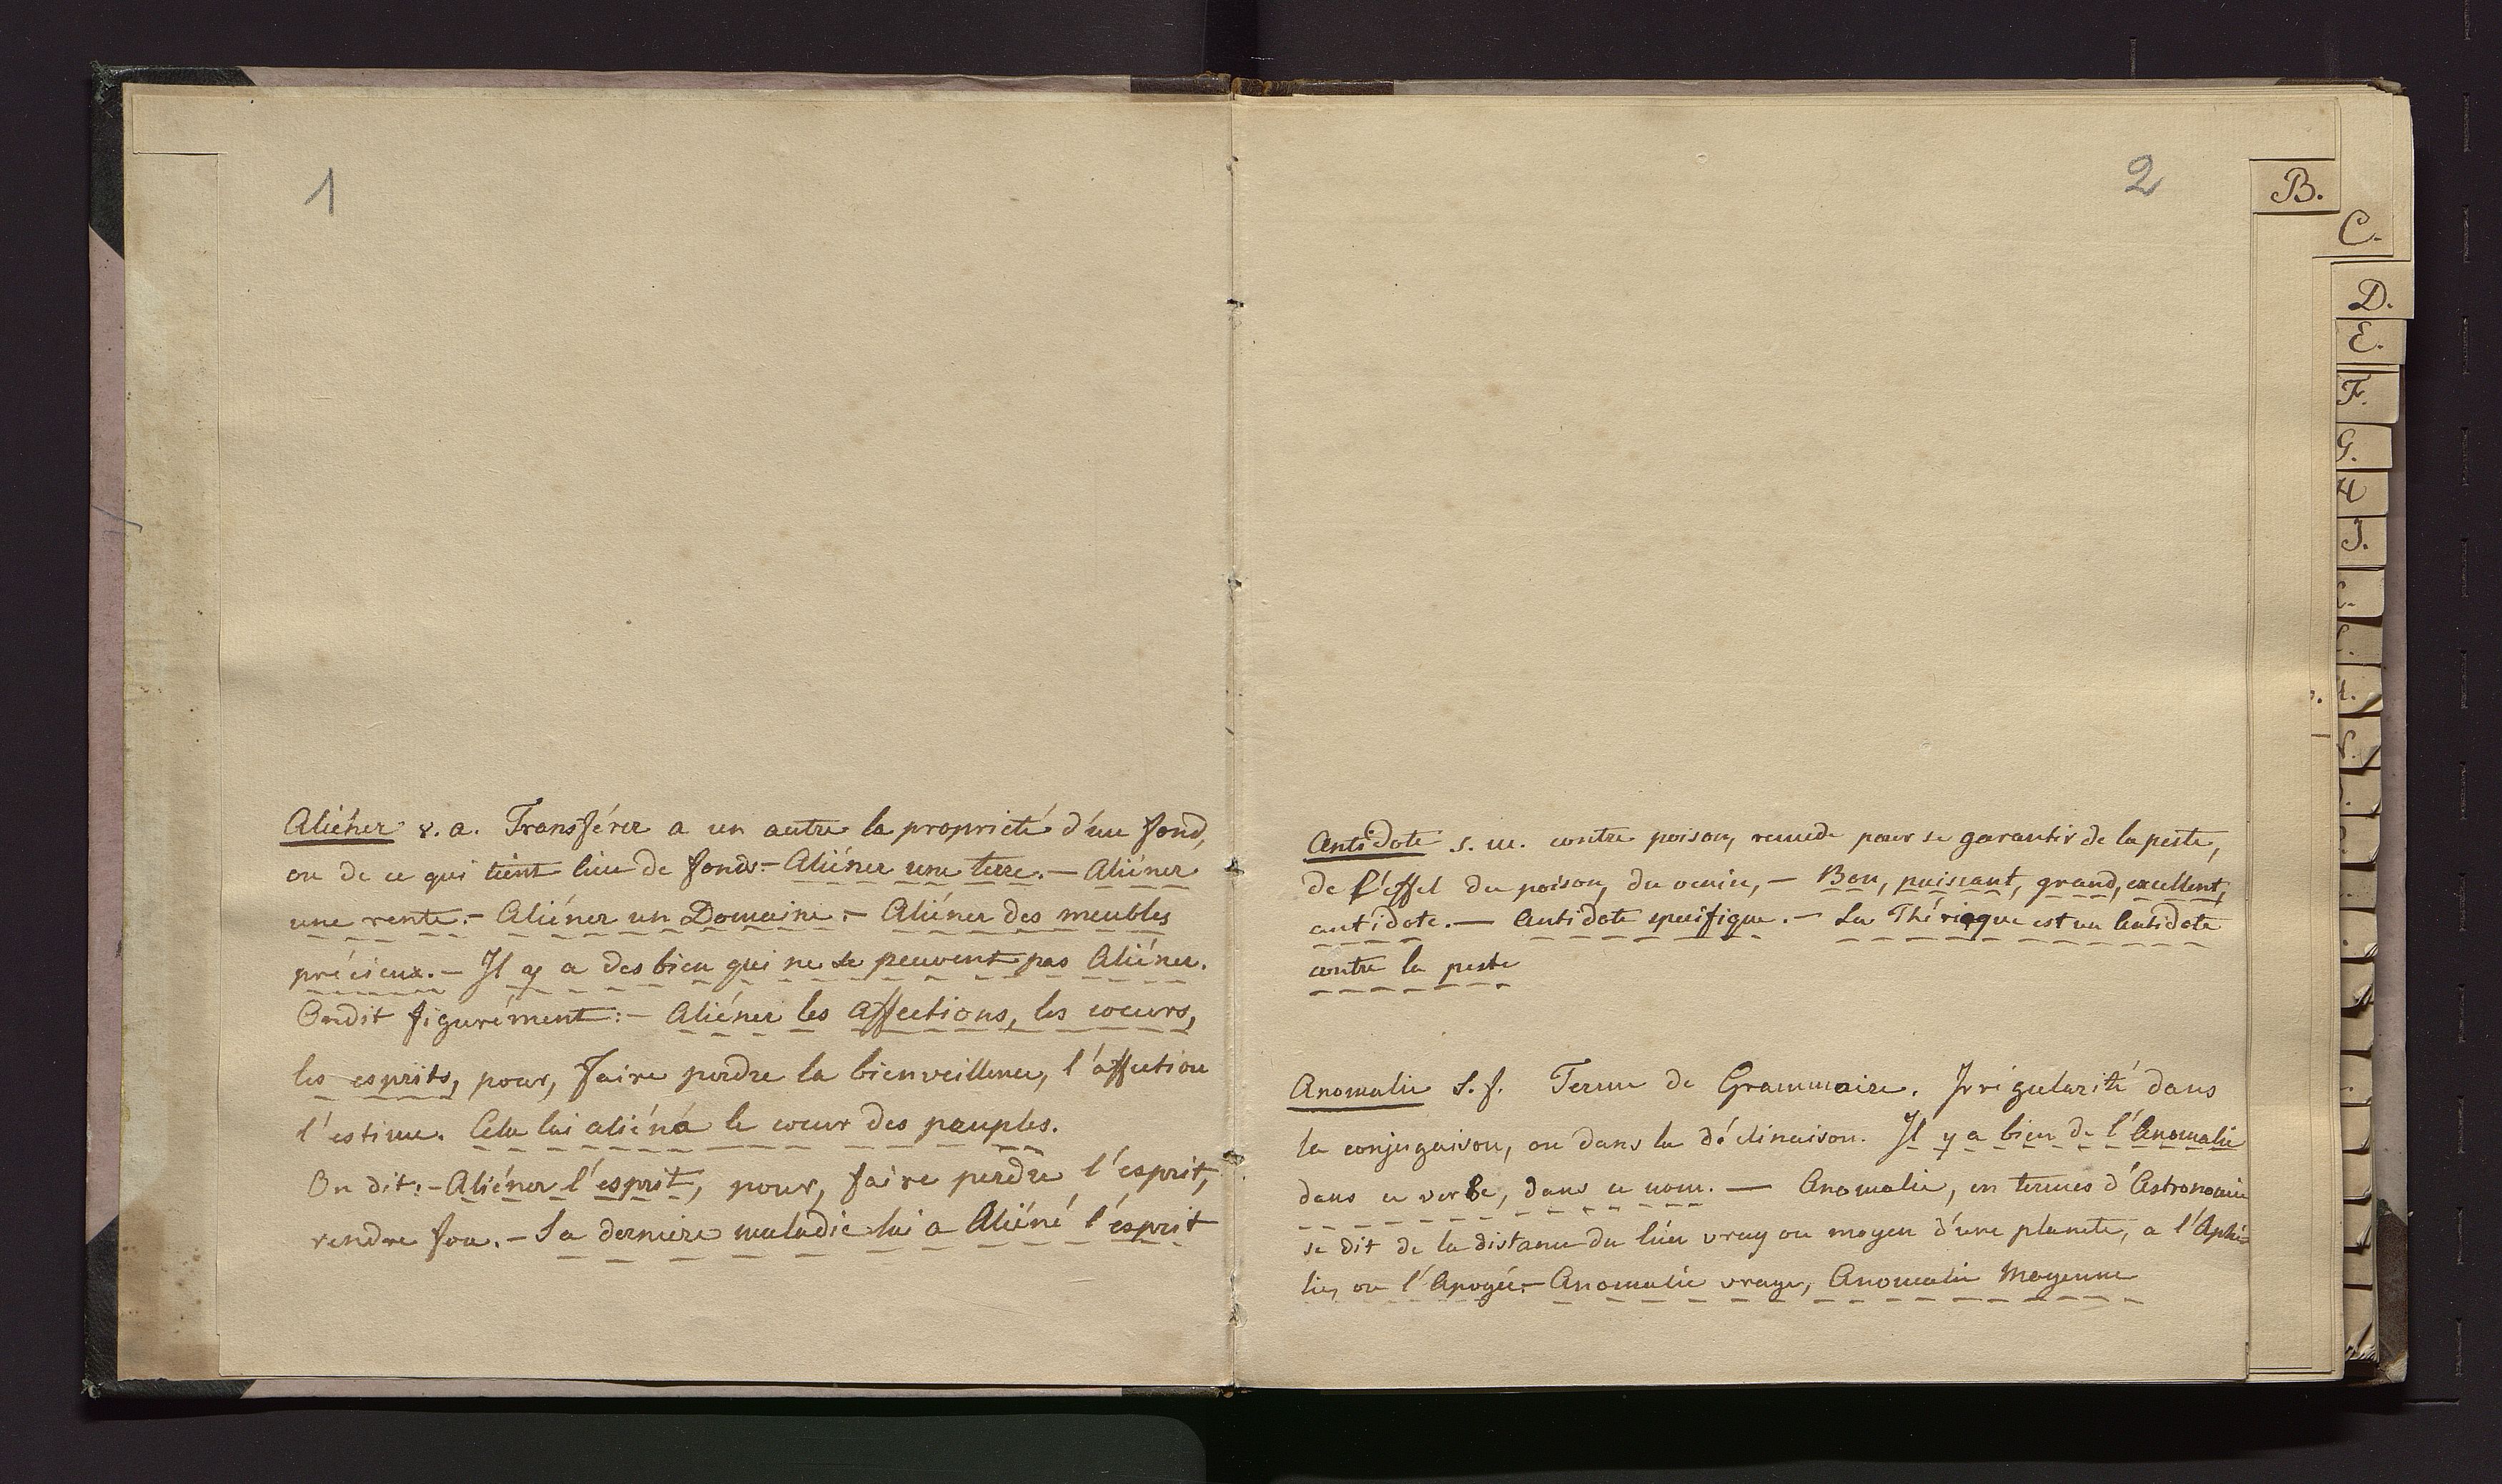 1
Aliéner v. a. Transférer a un autre la proprieté d'un fond,
ou de ce qui tient lieu de fonds.- Aliéner une terre.- Aliéner
une rente.- Aliéner un Domaine.- Aliéner des meubles
précieux.- Il y a des bien qui ne se peuvent pas Aliéner.
On dit figurément:- Aliéner les affections, les coeurs,
les esprits, pour, faire perdre la bienveillence, l'affection
l'estime. Cela lui aliéna le coeur des peuples.
On dit:- Aliéner l'esprit, pour, faire perdre l'esprit,
rendre fou.- Sa derniere maladie lui a Aliéné l'esprit
2
Antidote s. m. contre poison, remede pour se garantir de la peste,
de l'effet du poison, du venin,- Bon, puissant, grand, excellent,
antidote.- Antidote specifique.- La Thériaque est un Antidote
contre la peste
Anomalie S. f. Terme de Grammaire. Irrégularité dans
la conjugaison, ou dans la déclinaison. Il y a bien de l'Anomalie
dans ce verbe, dans ce nom.- Anomalie, en termes d'Astronomie
se dit de la distance du lieu vray ou moyen d'une planete, a l'Aphé=
lie, ou l'Apogée.- Anomalie vraye, Anomalie Moyenne
B.
C.
D.
E.
F.
G.
H
I.